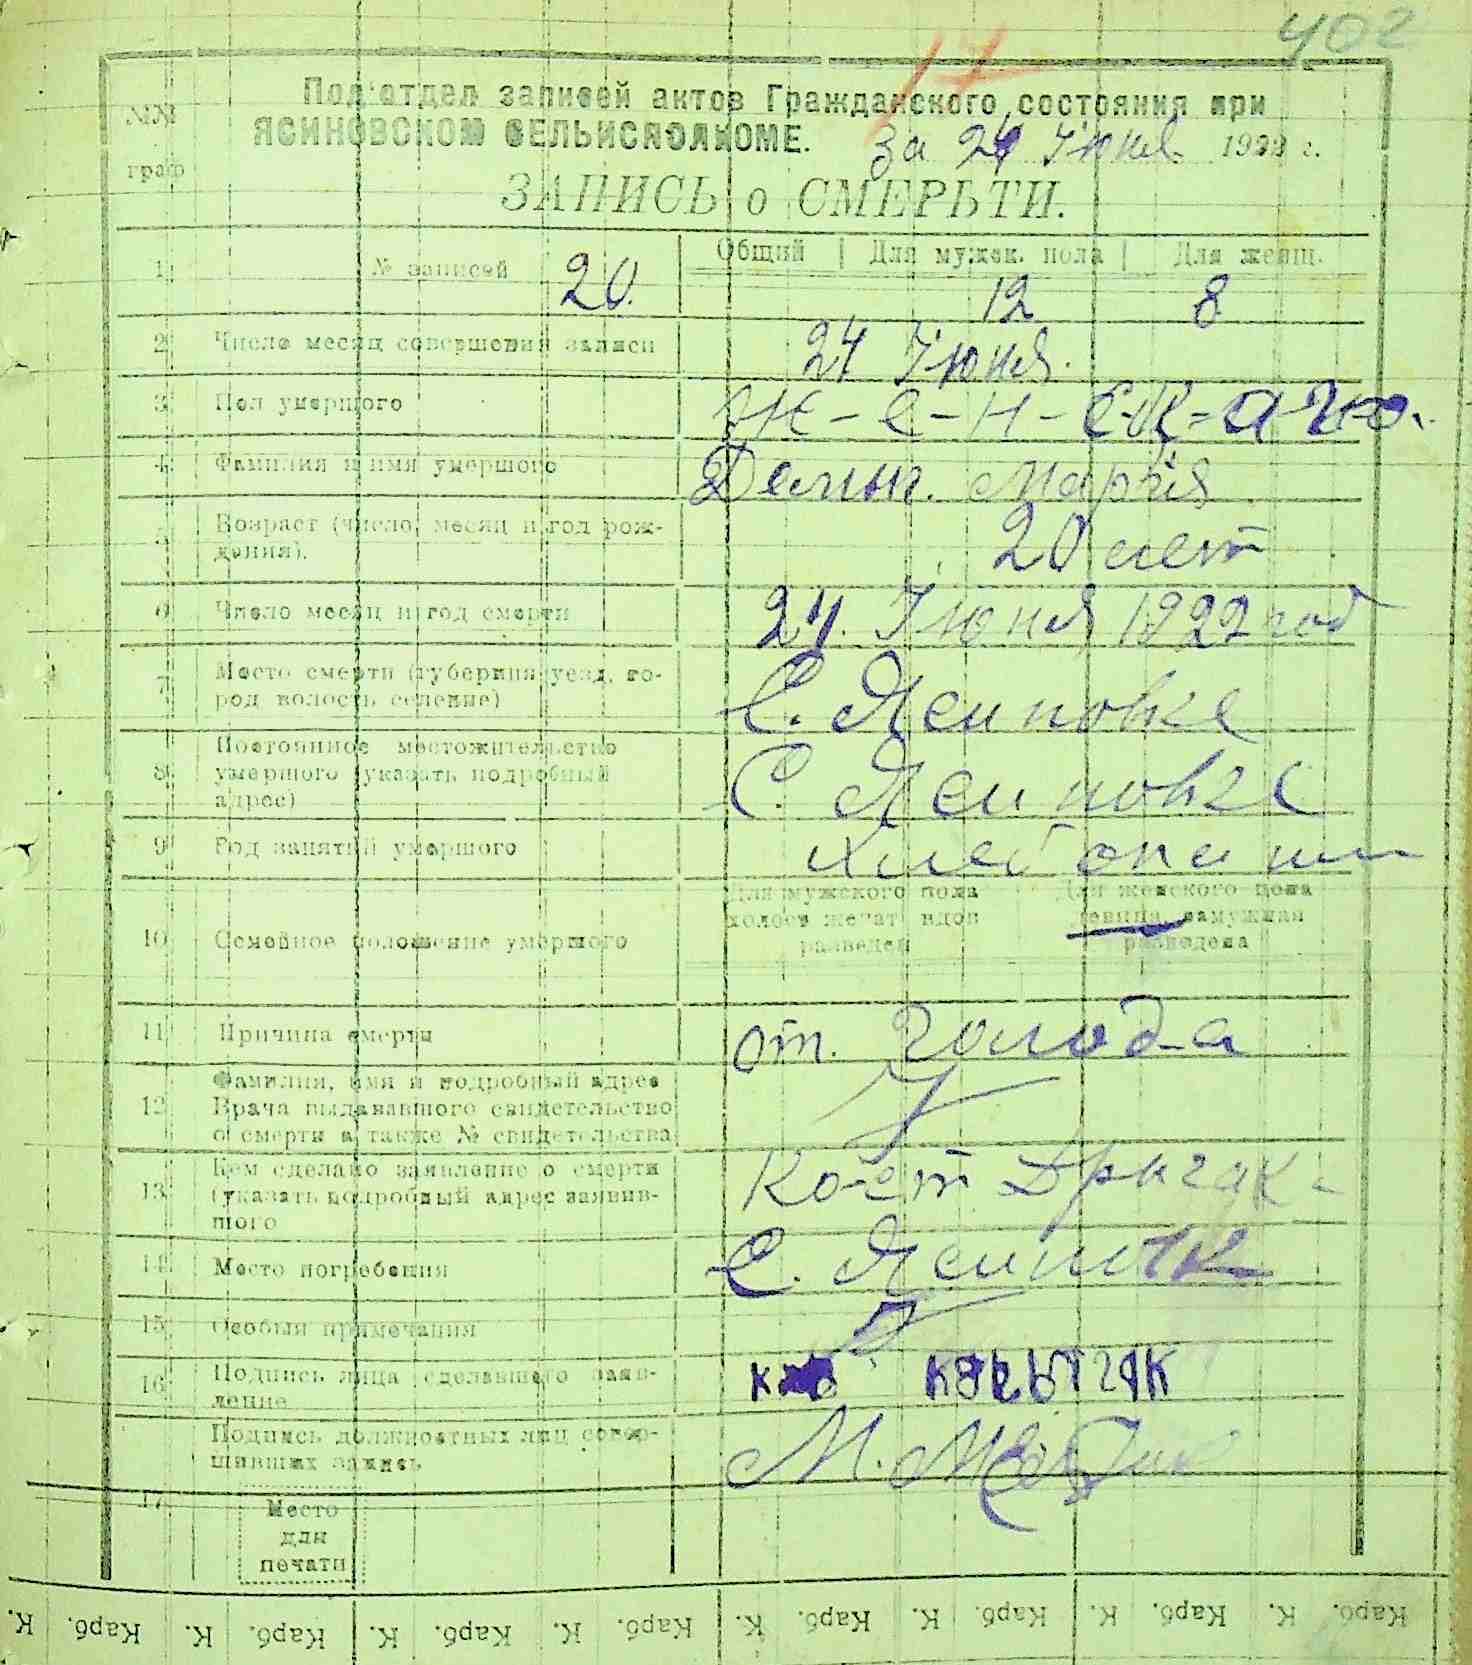 402
17
Под'отдел записей актов Гражданского состояния при
ЯСИНОВСКОМ СЕЛЬИСПОЛКОМЕ. за 24 Июня 1922 г.
№№ граф
ЗАПИСЬ о СМЕРЬТИ.
1 № записей 20. Общий | Для мужск. пола | Для женщ.
12 8
2 Число месяц совершения записи 24 Июня.
3 Пол умершого Ж-е-н-ск-а-го.
4 Фамилия и имя умершого Мария
5 Возраст (число, месяц и год рож-
дения). 20 лет
6 Число месяц и год смерти 24. Июня 1922 год
7 Место смерти (губерния уезд, го-
род волость селение) С. Ясиновке
8 Постоянное местожительство
умершого (указать подробный
адрес) С. Ясиновке
9 Род занятий умершого
10 Семейное положение умершого
Для мужского пола
холост женат вдов
разведен
Для женского пола
девица, замужняя
разведена
11 Причина смерти от. голода
12 Фамилия, имя и подробный адрес
Врача выдававшого свидетельство
о смерти а также № свидетельства
13 Кем сделано заявление о смерти
(указать подробный адрес заявив-
шого
14 Место погребения С.
15 Особыя примечания
16 Подпись лица сделавшего заяв-
ление
Подпись должностных лиц совер-
шивших запись М.
17
Место
для
печати
К. Карб. К. Карб. К. Карб. К. Карб. К. Карб. К. Карб. К. Карб. К. Карб.